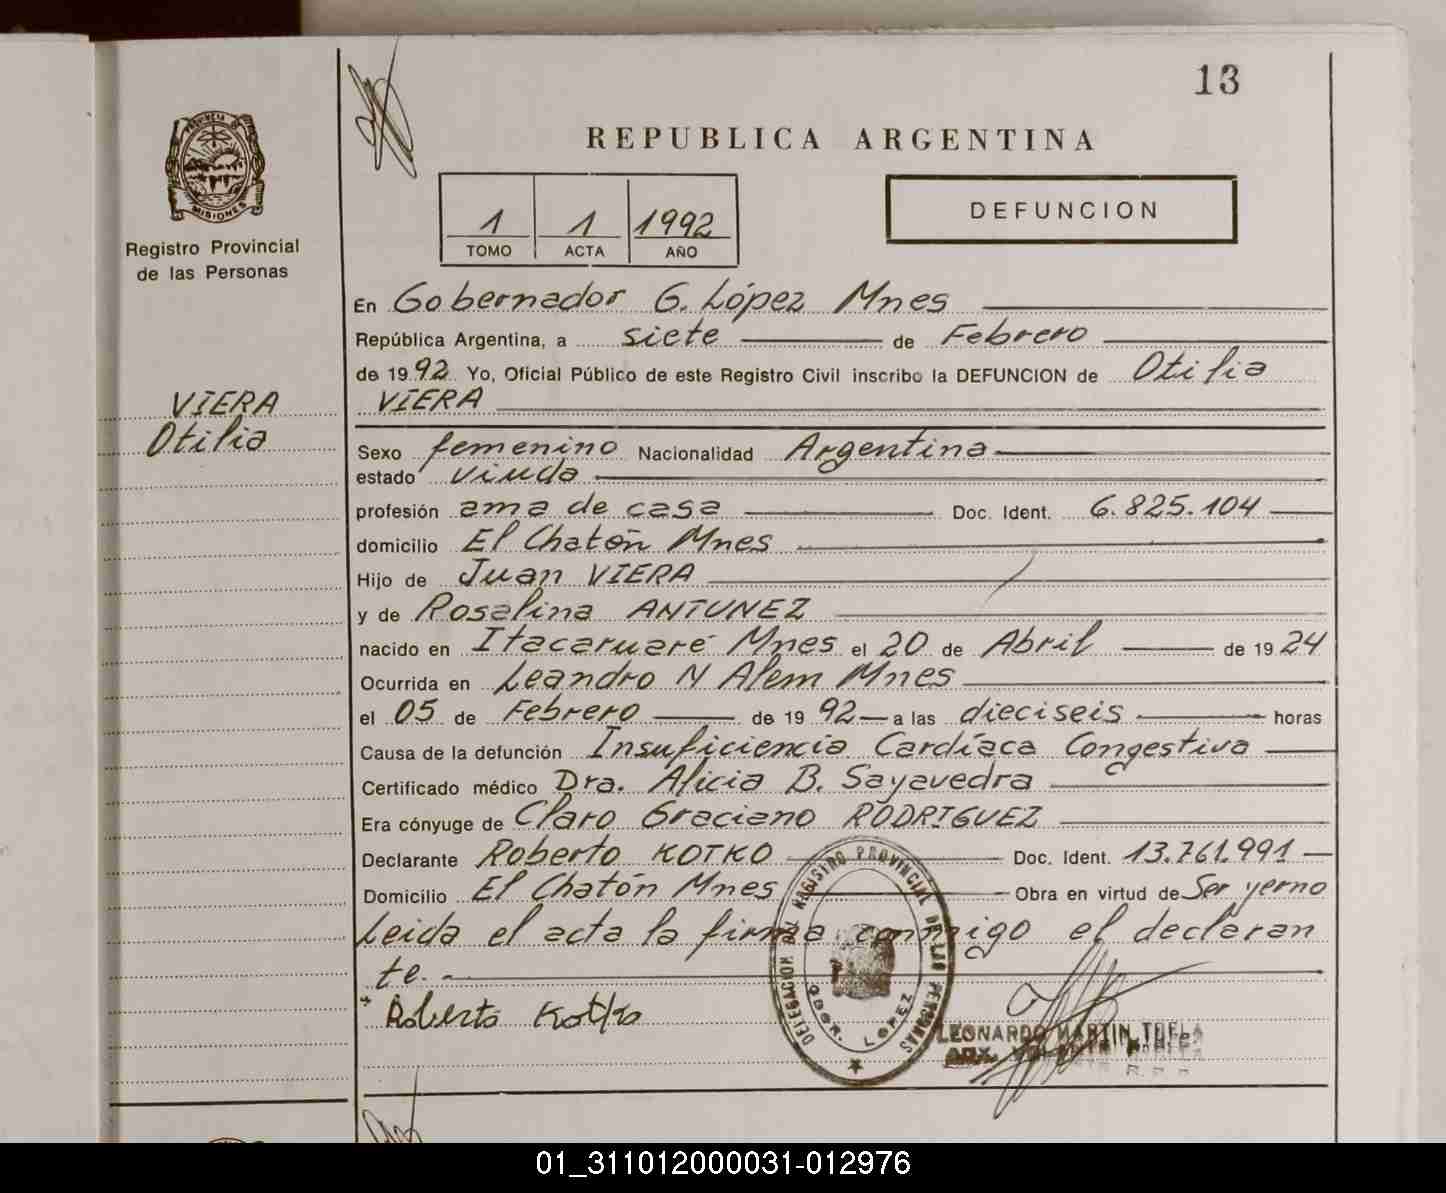 13
PROVINCIA DE
MISIONES
Registro Provincial
de las Personas
REPUBLICA ARGENTINA
1 1 1992
TOMO ACTA AÑO
DEFUNCION
En Gobernador G. López Mnes
República Argentina, a siete de Febrero
de 1992 Yo, Oficial Público de este Registro Civil inscribo la DEFUNCION de Otilia
VIERA
VIERA
Otilia
Sexo femenino Nacionalidad Argentina
estado viuda
profesión ama de casa Doc. Ident. 6.825.104
domicilio El Chatón Mnes
Hijo de Juan VIERA
y de Rosalina ANTUNEZ
nacido en Itacaruaré Mnes el 20 de Abril de 1924
Ocurrida en Leandro N Alem Mnes
el 05 de Febrero de 1992 a las dieciseis horas
Causa de la defunción Insuficiencia Cardíaca Congestiva
Certificado médico Dra. Alicia B. Sayavedra
Era cónyuge de Claro Graciano RODRIGUEZ
Declarante Roberto KOTKO Doc. Ident. 13.761.991
Domicilio El Chatón Mnes Obra en virtud de Ser yerno
Leida el acta la firma conmigo el declaran
te.-
Roberto Kotko
DELEGACION DEL REGISTRO PROVINCIAL DE LAS PERSONAS
GDOR. LOPEZ
LEONARDO MARTIN
01_311012000031-012976